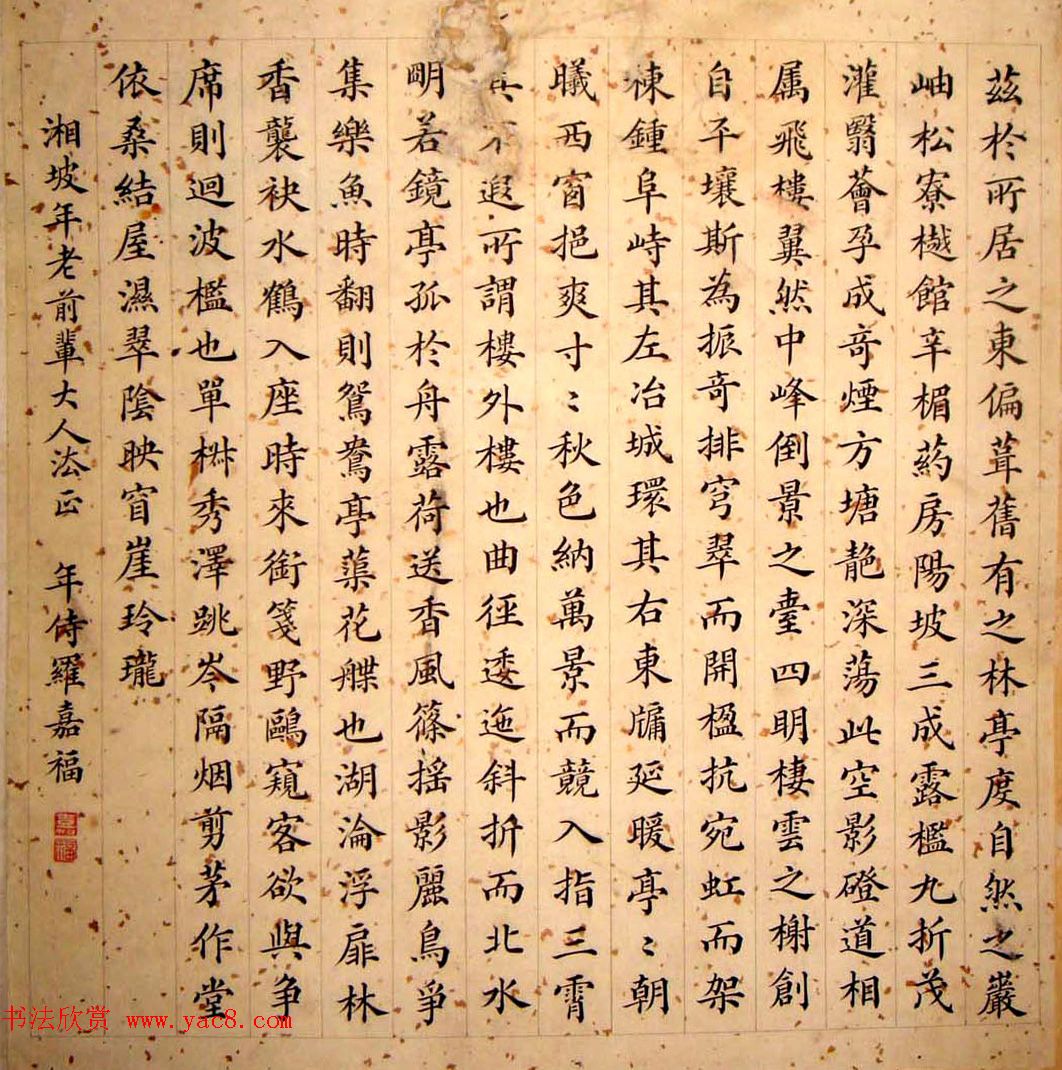 茲於所居之東偏葺舊有之林亭度自然之巖
岫松寮樾館辛楣葯房陽坡三成露檻九折茂
灌翳薈孕成奇煙方塘靘深蕩此空影磴道相
属飛樓翼然中峰倒景之臺四明棲雲之榭創
自平壤斯為振奇排穹翠而開楹抗宛虹而架
棟鍾阜峙其左冶城環其右東牖延暖亭〻朝
曦西窗挹爽寸〻秋色納萬景而競入指三霄
其不遐所謂樓外樓也曲徑逶迤斜折而北水
明若鏡亭孤於舟露荷送香風篠搖影麗鳥爭
集樂魚時翻則鴛鴦亭蕖花艓也湖淪浮扉林
香襲袂水鶴入座時來銜箋野鷗窺客欲與争
席則迴波檻也單椒秀澤跳岑隔烟剪茅作堂
依桑結屋濕翠陰映窅崖玲瓏
湘坡年老前輩大人法正 年侍羅嘉福
嘉福
书法欣赏 www.yac8.com